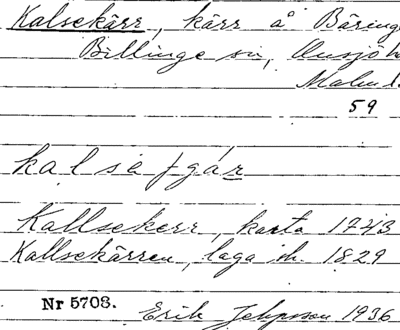 Kalsekärr, kärr å Bäringe
Billinge sn, Onsjö h
Malm. l.
59
Kallsekerr, karta 1743
Kallsekärren, laga sk. 1829
Nr 5703.
Erik Jeppsson 1936